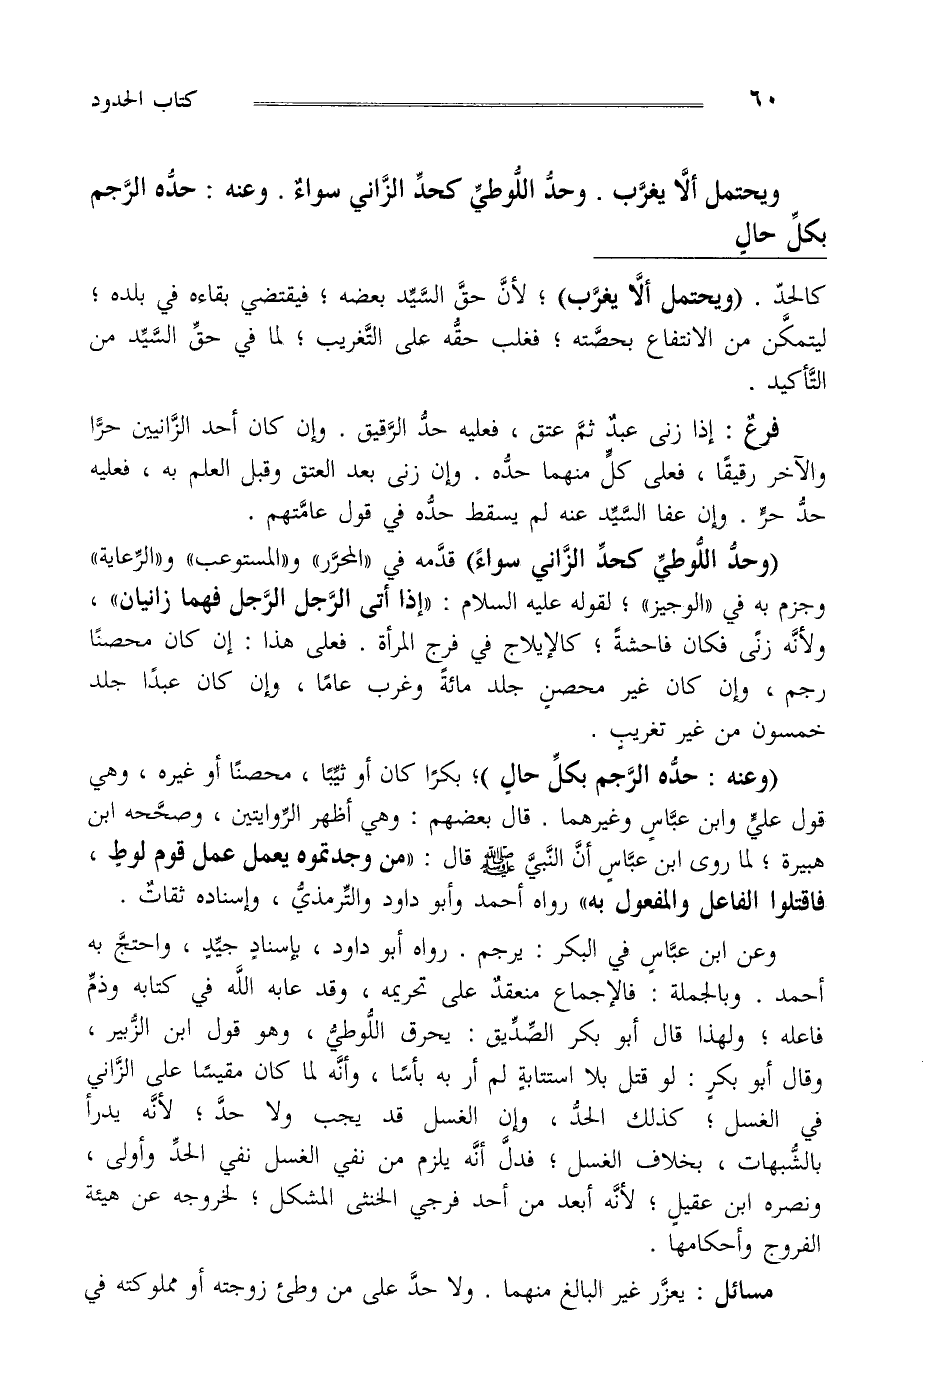 ٦٠ كتاب الحدود
ويحتمل ألَّا يغرَّب . وحدُّ اللُّوطيِّ كحدِّ الزَّاني سواءٌ . وعنه : حدُّه الرَّجم
بكلِّ حالٍ
كالحدّ . (ويحتمل ألَّا يغرَّب) ؛ لأنَّ حقَّ السَّيِّد بعضه ؛ فيقتضي بقاءه في بلده ؛
ليتمكَّن من الانتفاع بحصَّته ؛ فغلب حقُّه على التَّغريب ؛ لما في حقِّ السَّيِّد من
التَّأكيد .
فرعٌ : إذا زنى عبدٌ ثمَّ عتق ، فعليه حدُّ الرَّقيق . وإن كان أحد الزَّانيين حرًّا
والآخر رقيقًا ، فعلى كلٍّ منهما حدُّه . وإن زنى بعد العتق وقبل العلم به ، فعليه
حدُّ حرٍّ . وإن عفا السَّيِّد عنه لم يسقط حدُّه في قول عامَّتهم .
(وحدُّ اللُّوطيِّ كحدِّ الزَّاني سواءً) قدَّمه في «المحرَّر» و«المستوعب» و«الرِّعاية»
وجزم به في «الوجيز» ؛ لقوله عليه السلام : «إذا أتى الرَّجل الرَّجل فهما زانيان» ،
ولأنَّه زنًى فكان فاحشةً ؛ كالإيلاج في فرج المرأة . فعلى هذا : إن كان محصنًا
رجم ، وإن كان غير محصنٍ جلد مائةً وغرب عامًا ، وإن كان عبدًا جلد
خمسون من غير تغريبٍ .
(وعنه : حدُّه الرَّجم بكلِّ حالٍ )؛ بكرًا كان أو ثيِّبًا ، محصنًا أو غيره ، وهي
قول عليٍّ وابن عبَّاسٍ وغيرهما . قال بعضهم : وهي أظهر الرِّوايتين ، وصحَّحه ابن
هبيرة ؛ لما روى ابن عبَّاسٍ أنَّ النَّبيَّ ﷺ قال : «من وجدتموه يعمل عمل قوم لوطٍ ،
فاقتلوا الفاعل والمفعول به» رواه أحمد وأبو داود والتِّرمذيُّ ، وإسناده ثقاتٌ .
وعن ابن عبَّاسٍ في البكر : يرجم . رواه أبو داود ، بإسنادٍ جيِّدٍ ، واحتجَّ به
أحمد . وبالجملة : فالإجماع منعقدٌ على تحريمه ، وقد عابه اللَّه في كتابه وذمِّ
فاعله ؛ ولهذا قال أبو بكر الصِّدِّيق : يحرق اللُّوطيُّ ، وهو قول ابن الزُّبير ،
وقال أبو بكرٍ : لو قتل بلا استتابةٍ لم أر به بأسًا ، وأنَّه لما كان مقيسًا على الزَّاني
في الغسل ؛ كذلك الحدُّ ، وإن الغسل قد يجب ولا حدَّ ؛ لأنَّه يدرأ
بالشُّبهات ، بخلاف الغسل ؛ فدلَّ أنَّه يلزم من نفي الغسل نفي الحدِّ وأولى ،
ونصره ابن عقيلٍ ؛ لأنَّه أبعد من أحد فرجي الخنثى المشكل ؛ لخروجه عن هيئة
الفروج وأحكامها .
مسائل : يعزَّر غير البالغ منهما . ولا حدَّ على من وطئ زوجته أو مملوكته في